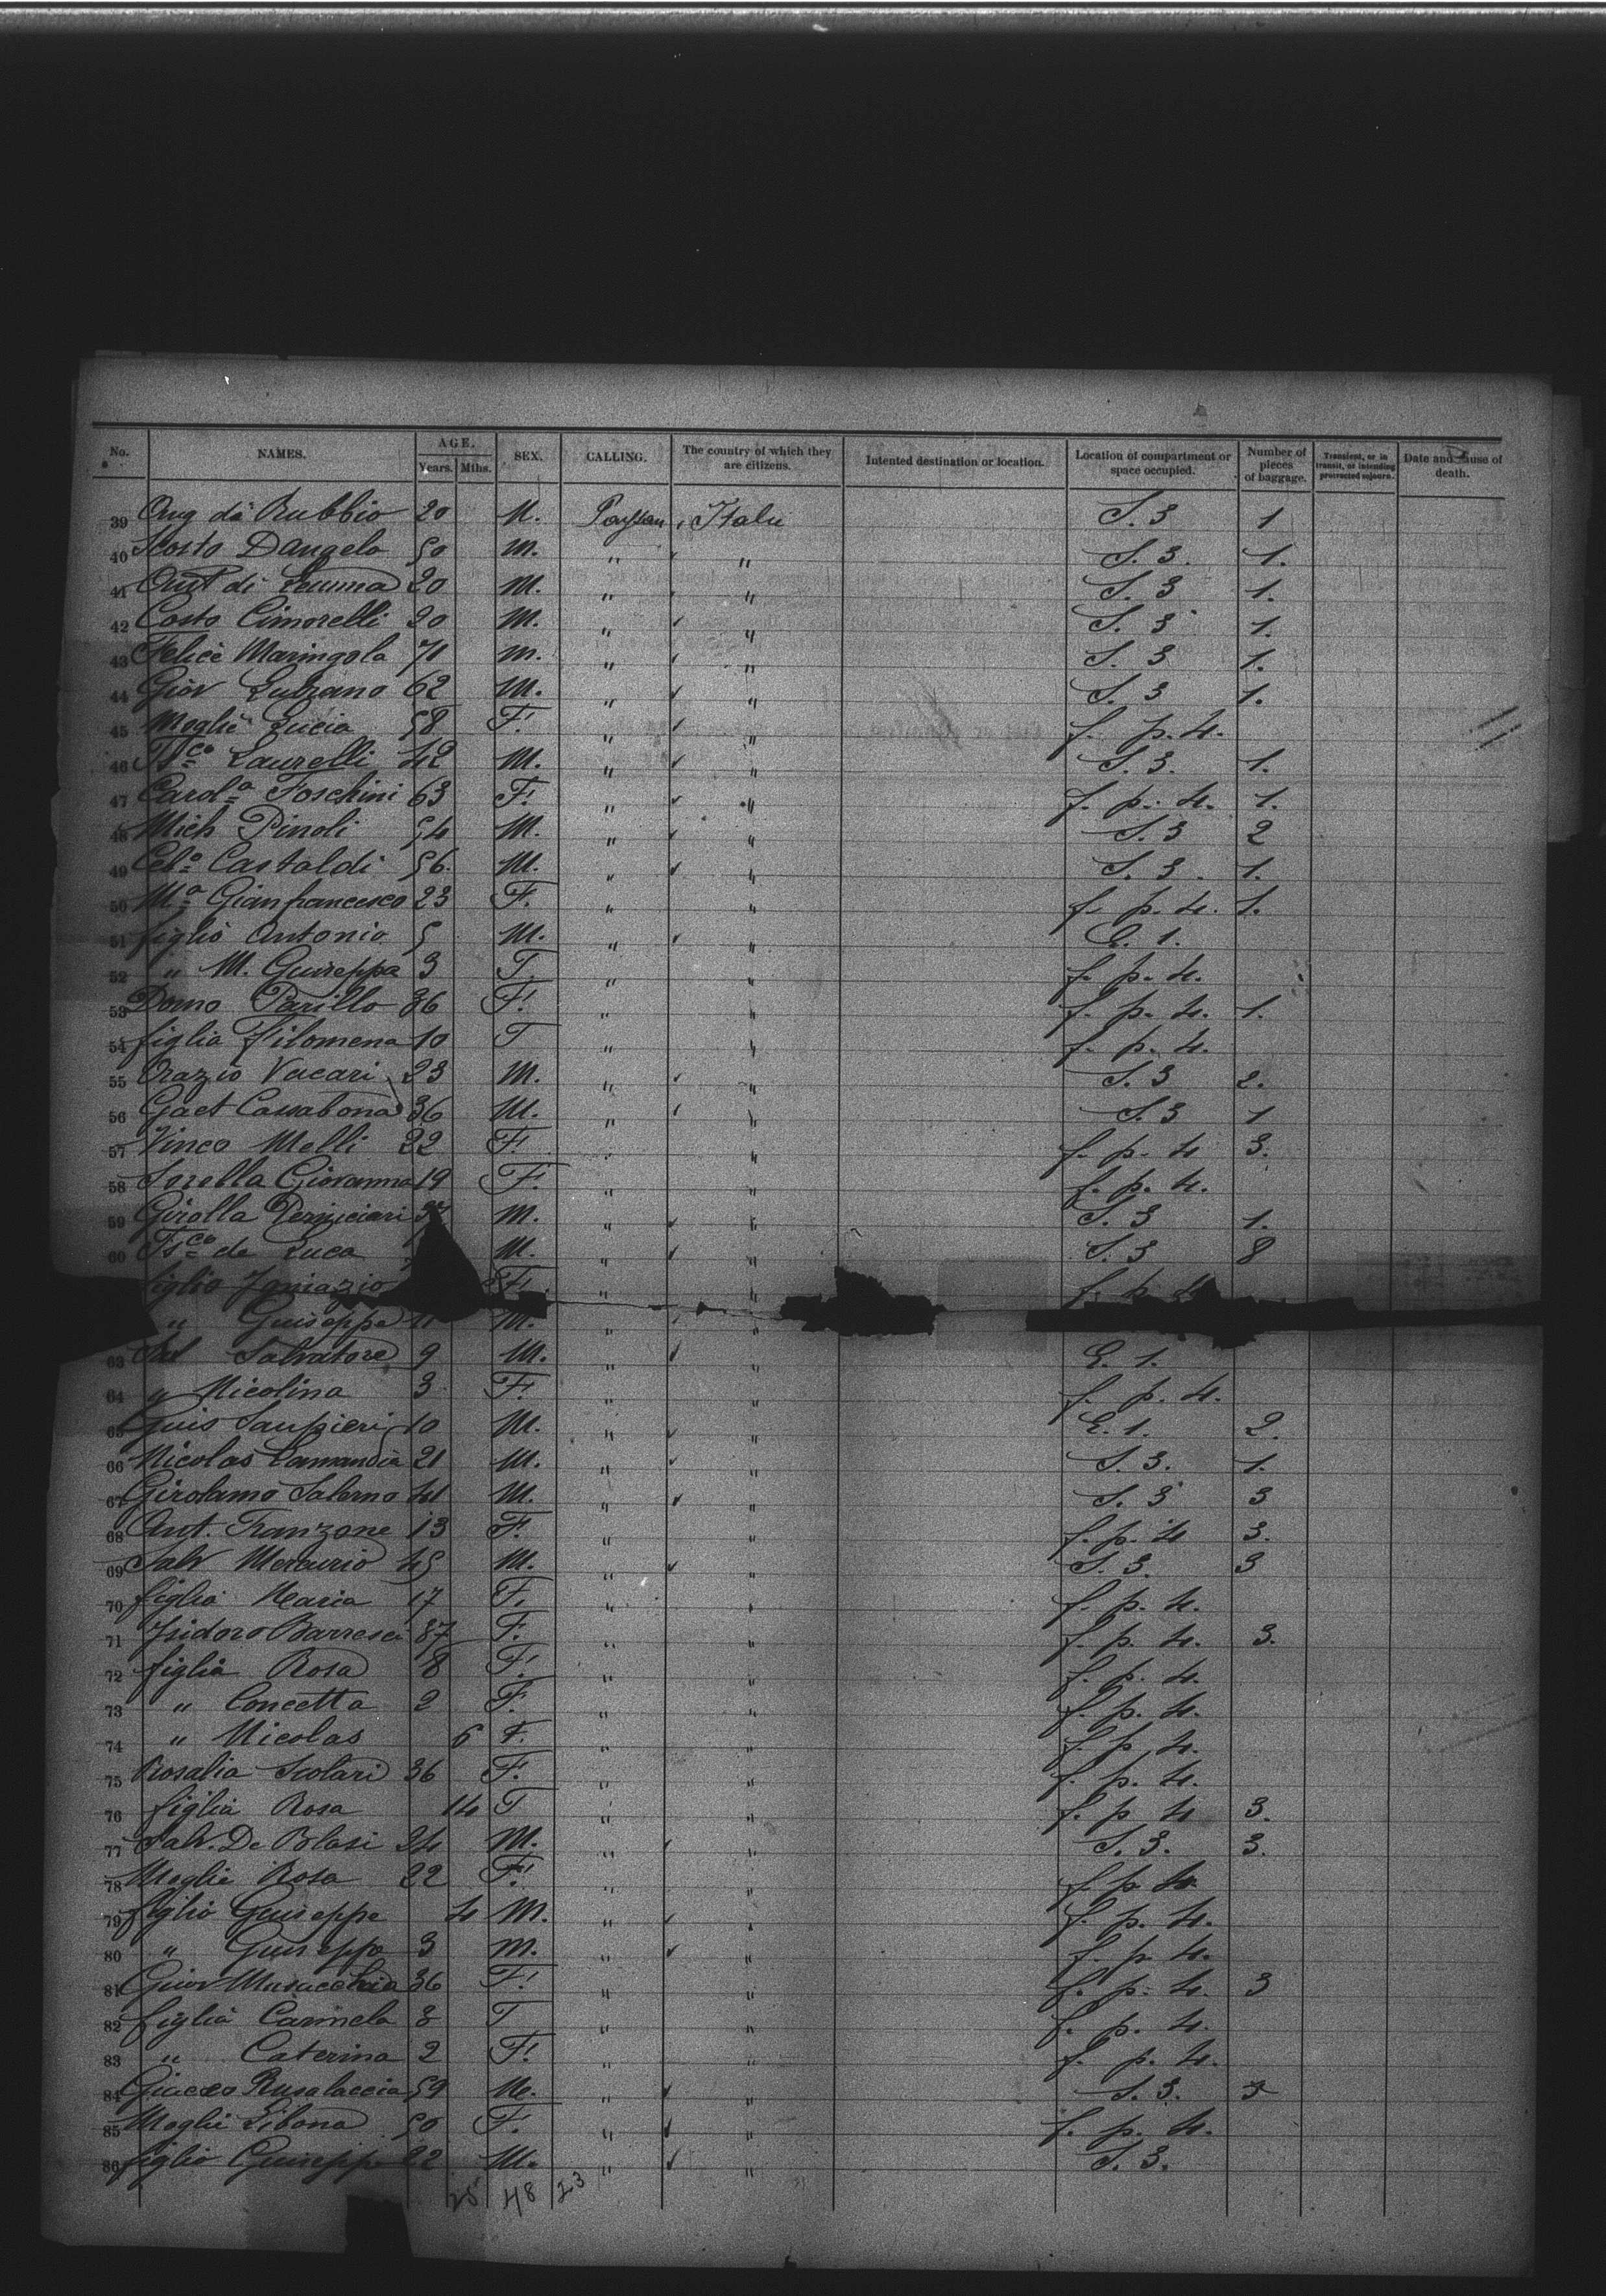 No. NAMES. AGE. Years. Mths. SEX. CALLING. The country of which they are citizens. Intented destination or location. Location of compartment or space occupied. Number of pieces of baggage. Transient, or in transit, or intending protracted sojourn. Date and Cause of death.
39 Ang di Rubbio 20 M. Italie S. 3 1
40 D'Angelo 50 M. " " S. 3. 1.
41 di 20 M. " " S. 3 1.
42 Costo Cimorelli 20 M. " " S. 3 1.
43 Felice Maringola 71 M. " " S. 3 1.
44 Giov 62 M. " " S. 3 1.
45 Moglie Lucia 58 F. " " f. p. 4.
46 Fsco Laurelli 42 M. " " S. 3. 1.
47 Carola Foschini 63 F. " " f. p. 4. 1.
48 Mich Pinoli 54 M. " " S. 3 2
49 Castaldi 56. M. " " S. 3. 1.
50 Ma Gianfrancesco 23 F. " " f. p. 4. 1.
51 figlio Antonio 5 M. " " E. 1.
52 " M. Guiseppa 3 F. " " f. p. 4.
53 Parillo 36 F. " " f. p. 4. 1.
54 figlia Filomena 10 F " " f. p. 4.
55 Orazio Vacari 23 M. " " S. 3 2.
56 Gaet Cassabona 36 M. " " S. 3 1
57 Vinco Melli 22 F. " " f. p. 4 3.
58 Sorella Giovanna 19 F. " " f. p. 4.
59 Girolla M. " " S. 3 1.
60 Fsco de Luca M. " " S. 3 8
figlio Igniazio F. " " f. p. 4
" Guiseppe 11 M. " "
63 Salvatore 9 M. " " E. 1.
64 " Nicolina 3 F. " " f. p. 4.
65 Guis 10 M. " " E. 1. 2.
66 Nicolas 21 M. " " S. 3. 1.
67 Girolamo Salerno 41 M. " " S. 3 3
68 Ant. Franzone 13 F. " " f. p. 4 3.
69 Salv Mercurio 45 M. " " S. 3. 3
70 figlia Maria 17 F. " " f. p. 4.
71 Isidoro Barresci 37 F. " " f. p. 4. 3.
72 figlia Rosa 8 F. " " f. p. 4.
73 " Concetta 2 F. " " f. p. 4.
74 " Nicolas 6 F. " " f. p. 4.
75 Rosalia Scolari 36 F. " " f. p. 4.
76 figlia Rosa 14 F " " f. p 4 3.
77 Salv. De Blasi 24 M. " " S. 3. 3.
78 Moglie Rosa 22 F. " " f. p. 4.
79 figlio Guiseppe 4 M. " " f. p. 4.
80 " Guiseppe 3 M. " " f. p. 4.
81 Giov 36 F. " " f. p. 4. 3
82 figlia Carmela 3 F " " f. p. 4.
83 " Caterina 2 F. " " f. p. 4.
84 Rusalaccia 59 M. " " S. 3. 3
85 Moglie 50 F. " " f. p. 4.
86 figlio Guiseppe 22 M. " " S. 3.
25 48 23